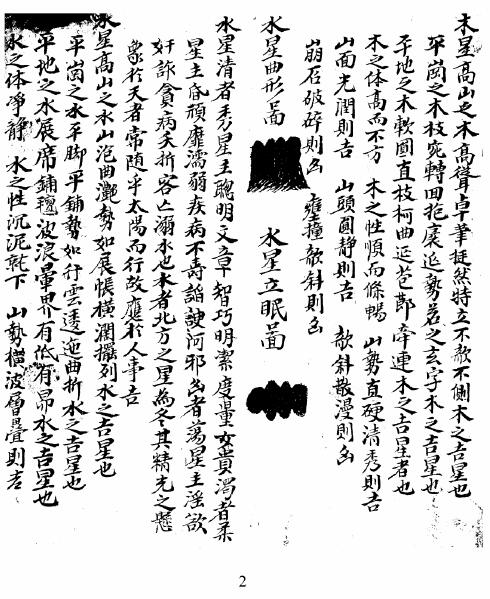 木星高山之木高聳卓筆挺然特立不欹不側木之吉星也
平崗之木枝宛轉回抱裹迤勢若之玄字木之吉星也
平地之木軟圓直枝柯曲延苞節牽連木之吉星者也
木之体高而不方 木之性順而條暢 山勢直硬清秀則吉
山面光潤則吉 山頭圓静則吉 欹斜散漫則凶
崩石破碎則凶 臃撞欹斜則凶
水星曲形啚 水星立眠啚
水星清者秀星主聰明文章智巧明潔度量女貴濁者柔
星主昏頑靡濡弱疾病不壽諂諛河邪凶者蕩星主淫欲
奸詐貪病夭折客亡溺水也木者北方之星為冬其精光之懸
象於天者常随乎太陽而行故應於人事吉
水星高山之水山泡曲灔勢如展帳橫瀾擺列水之吉星也
平崗之水平脚平鋪勢如行雲逶迤曲折水之吉星也
平地之水展席鋪氊波浪暈界有低有昂水之吉星也
水之体凈静 水之性沉泥就下 山勢橫波層疊則吉
2